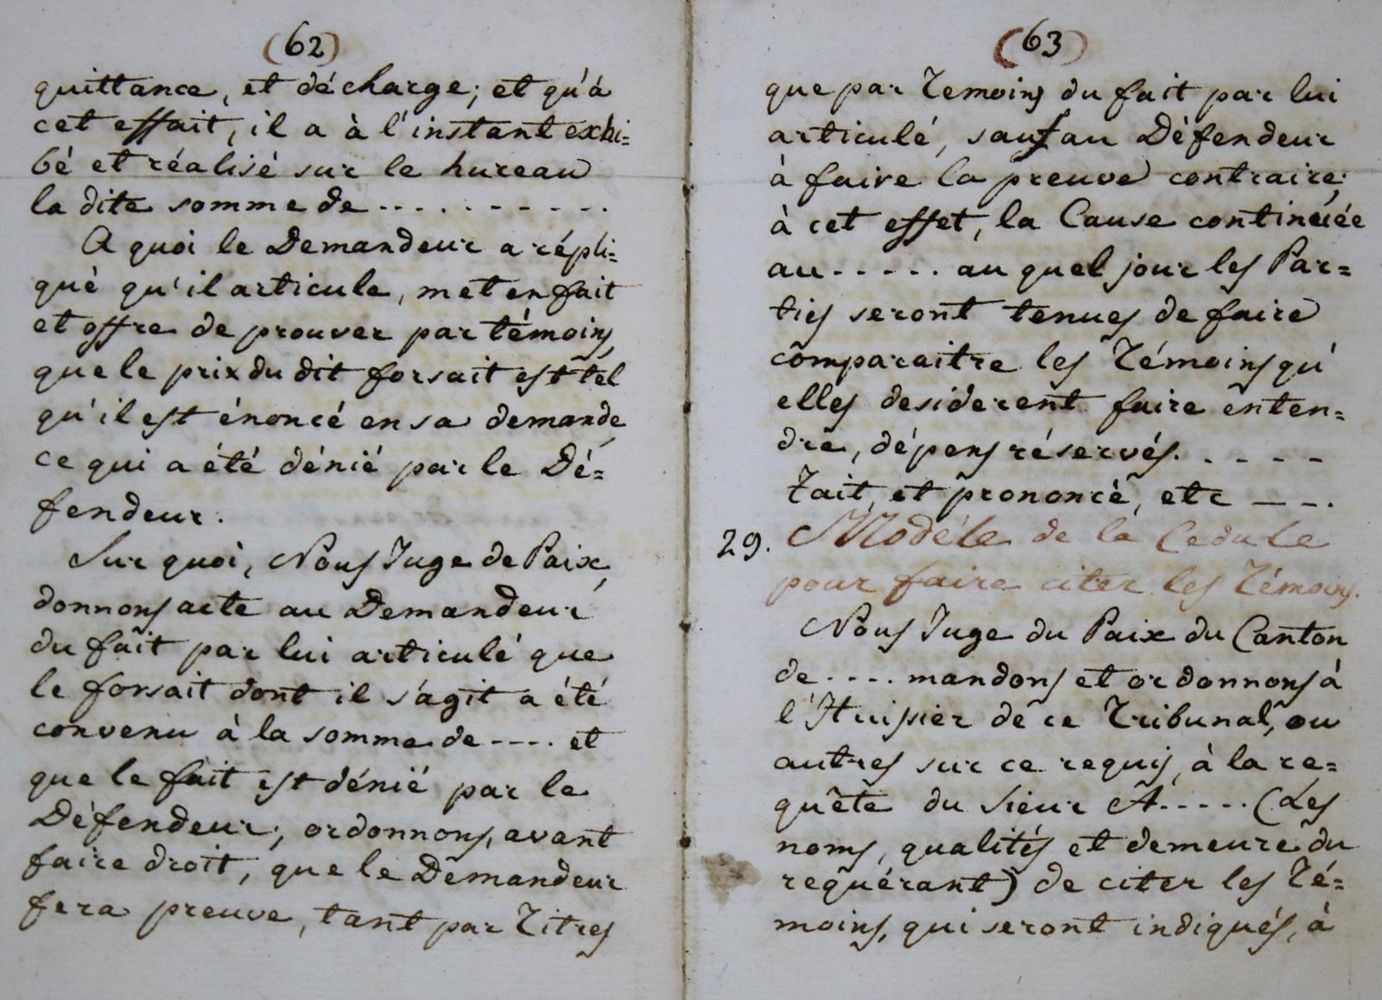 (62)
quittance, et décharge; et qu'à
cet effait, il a à l'instant exhi=
bé et réalisé sur le bureau
la dite somme de ----------
A quoi le Demandeur a répli=
qué qu'il articule, met en fait
et offre de prouver par témoins
que le prix du dit forsait est tel
qu'il est énoncé en sa demande,
ce qui a été dénié par le Dé=
fendeur.
Sur quoi, Nous Juge de Paix,
donnons acte au Demandeur
du fait par lui articulé que
le forsait dont il s'agit a été
convenu à la somme de ---- et
que le fait est dénié par le
Défendeur; ordonnons, avant
faire droit, que le Demandeur
fera preuve, tant par Titres
(63)
que par Temoins du fait par lui
articulé, sauf au Défendeur
à faire la preuve contraire;
à cet effet, la Cause continuée
au ----- au quel jour les Par=
ties seront tenues de faire
comparaitre les Témoins qu'
elles desiderent faire enten=
dre, dépens réservés. ----
Fait et prononcé, etc ---.
29. Modéle de la Cedule
pour faire citer les Témoins.
Nous Juge du Paix du Canton
de ---- mandons et ordonnons à
l'Huissier de ce Tribunal, ou
autres sur ce requis, à la re=
quête du Sieur A ----- (Les
noms, qualités et demeure du
requérant) de citer les Té=
moins, qui seront indiqués, à